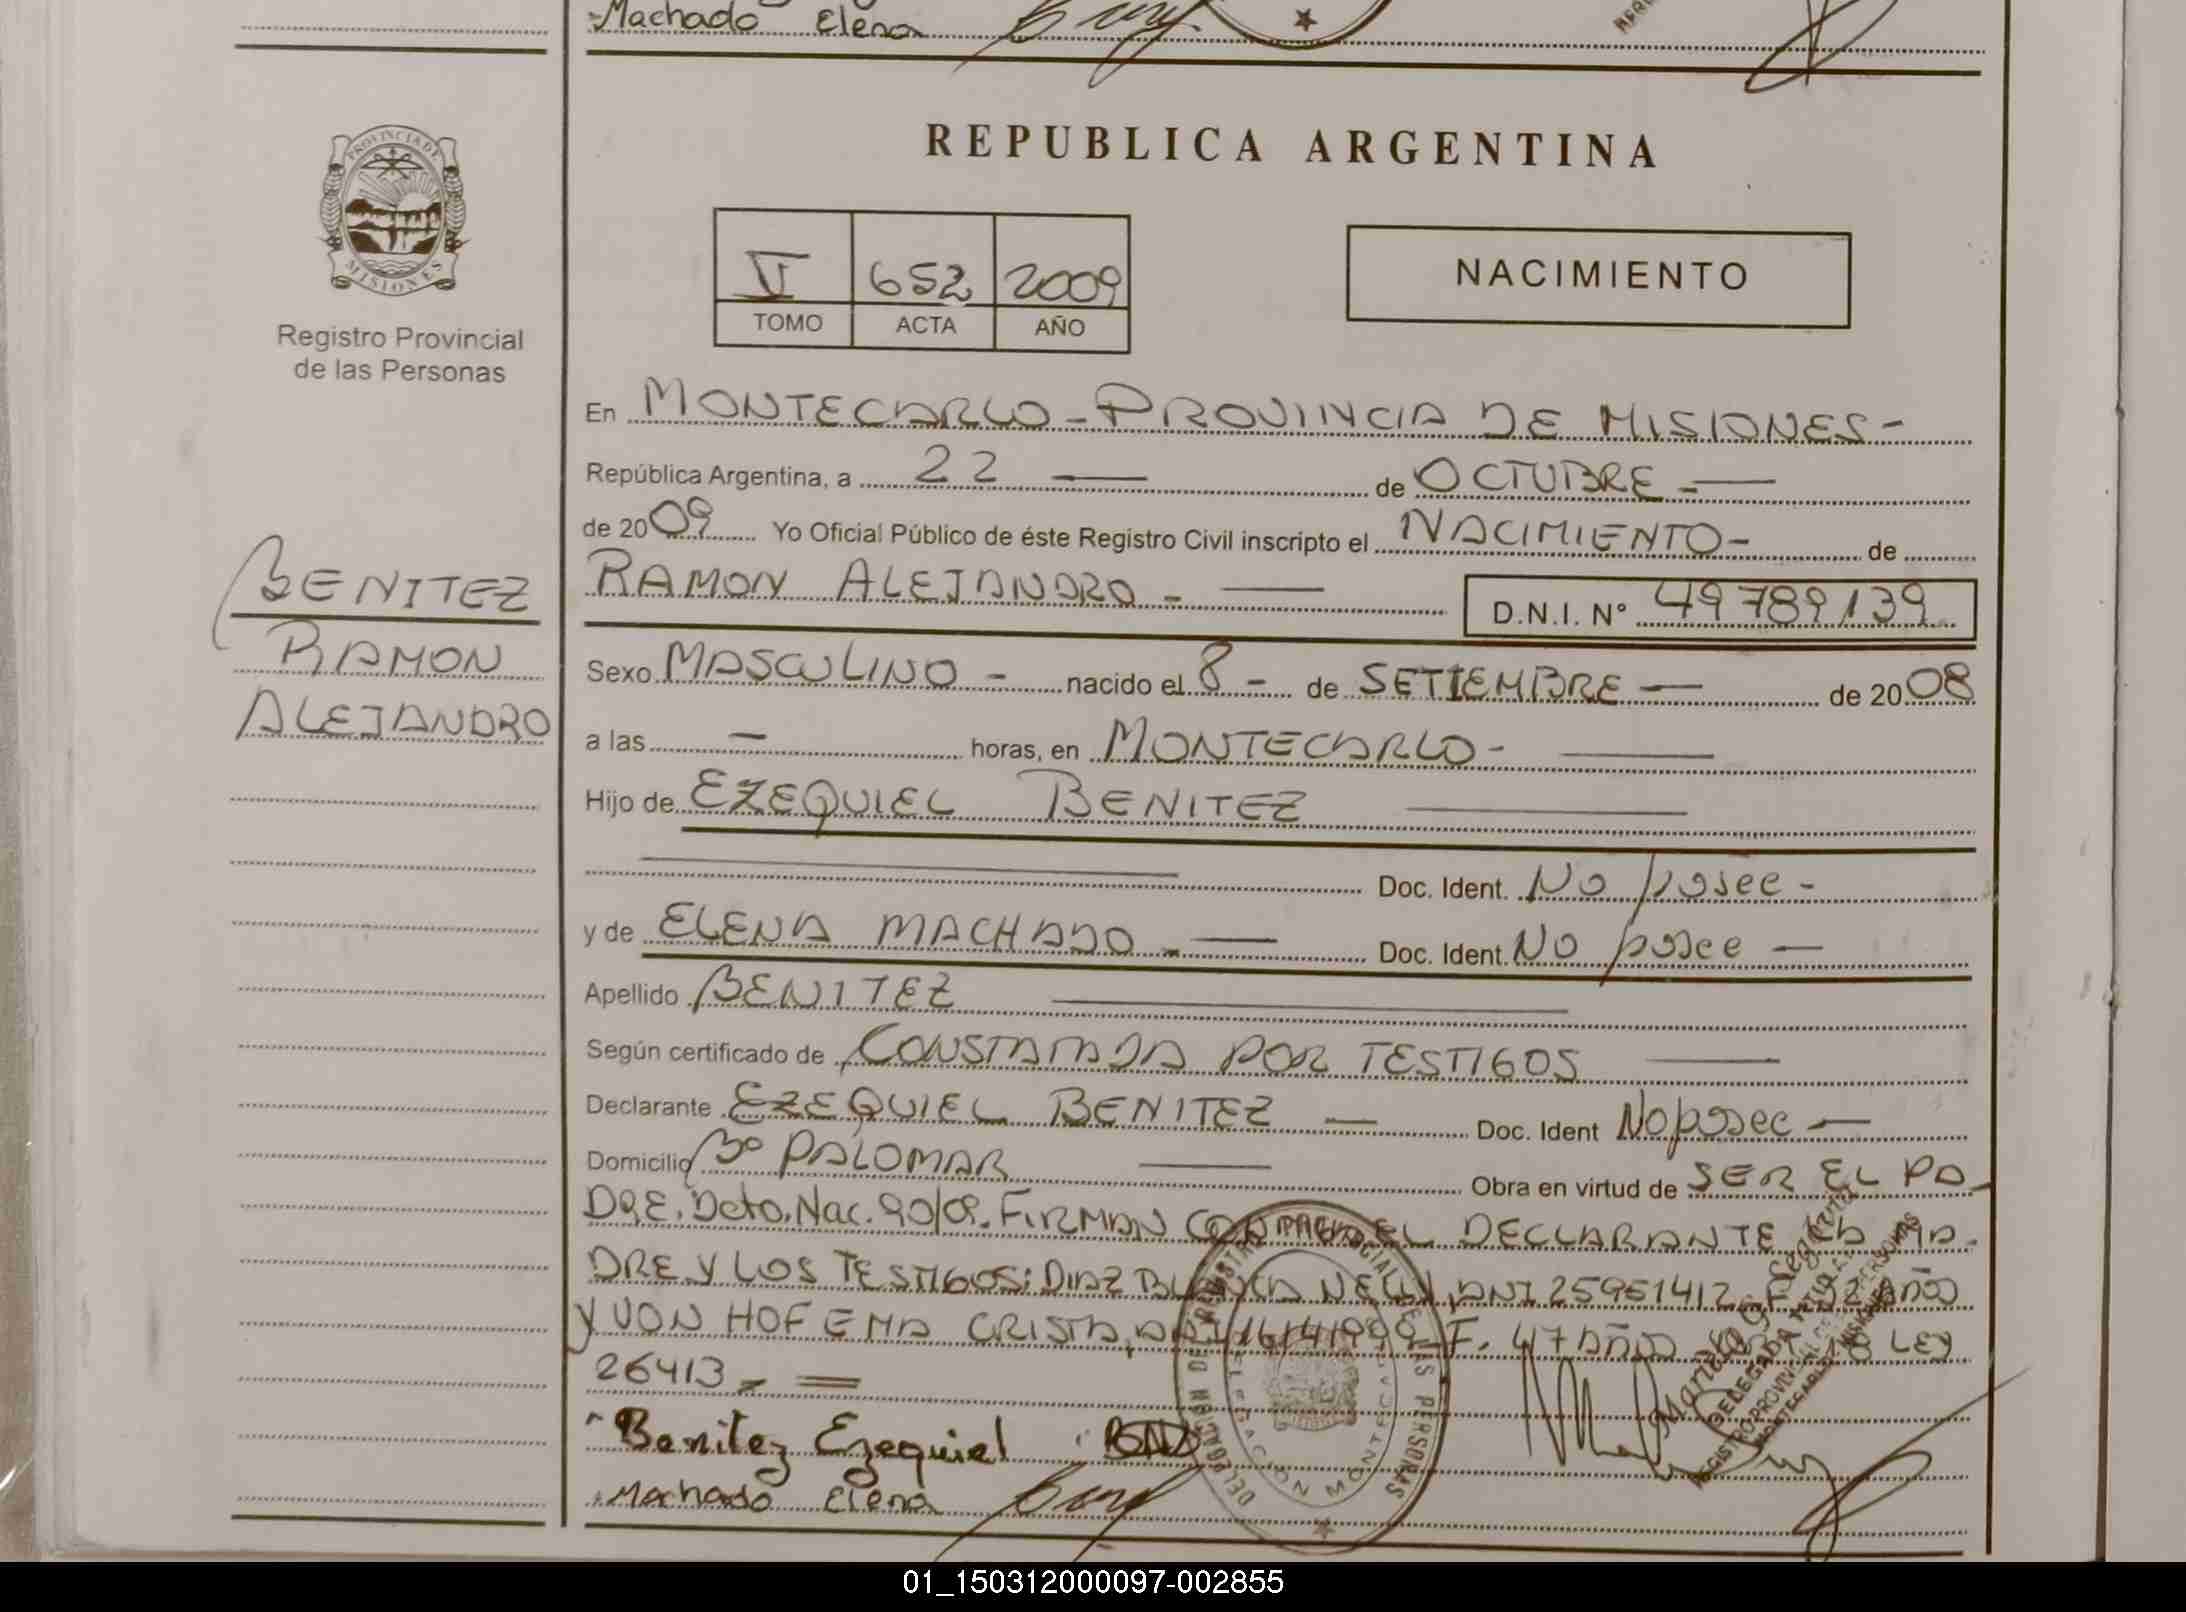 Machado Elena
REPUBLICA ARGENTINA
PROVINCIA DE
MISIONES
Registro Provincial
de las Personas
V 652 2009
TOMO ACTA AÑO
NACIMIENTO
En MONTECARLO - PROVINCIA DE MISIONES -
República Argentina, a 22 — de OCTUBRE —
de 2009 Yo Oficial Público de éste Registro Civil inscripto el NACIMIENTO - de
RAMON ALEJANDRO - — D.N.I. Nº 49789139
BENITEZ
RAMON
ALEJANDRO
Sexo MASCULINO - nacido el 8 - de SETIEMBRE — de 2008
a las — horas, en MONTECARLO - —
Hijo de EZEQUIEL BENITEZ —
Doc. Ident. No posee -
y de ELENA MACHADO - — Doc. Ident. No posee —
Apellido BENITEZ —
Según certificado de CONSTATADA POR TESTIGOS —
Declarante EZEQUIEL BENITEZ — Doc. Ident No posee —
Domicilio Bº PALOMAR — Obra en virtud de SER EL PA-
DRE. Dcto. Nac. 90/09. FIRMAN CON EL DECLARANTE LA MA-
DRE Y LOS TESTIGOS: DIAZ BLANCA NELLY, DNI 25951412, F. 32 AÑOS
Y VON HOF EMA CRISTA, DNI F. 47 AÑOS LEY
26413 - =
Benitez Ezequiel
Machado Elena
REGISTRO PROVINCIAL DE LAS PERSONAS
DELEGACION MONTECARLO
DELEGADA TITULAR
REGISTRO PROVINCIAL DE LAS PERSONAS
MONTECARLO - MISIONES
01_150312000097-002855